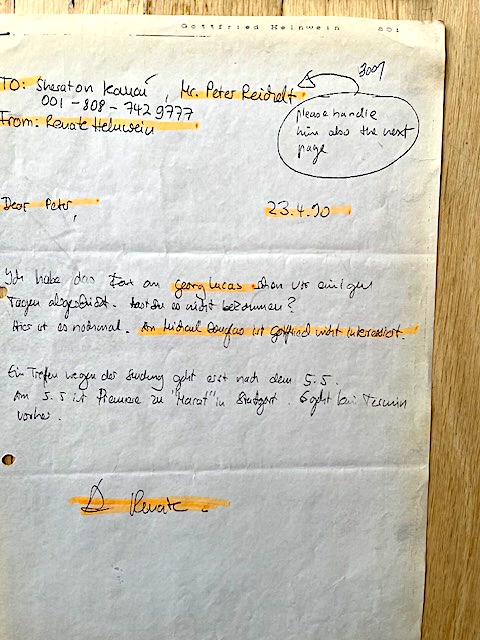 Gottfried Helnwein 801
TO: Sheraton Kauai, Mr. Peter Reichelt
001-808-742 9777
From: Renate Helnwein
please handle
him also the next
page
Dear Peter,
23.4.90
Ich habe das Fax an georg lucas schon vor einigen
Tagen abgeschickt. hast du es nicht bekommen?
Hier ist es nochmal. An Michael Douglas ist gottfried nicht interessiert.
Ein Treffen wegen der Sendung geht erst nach dem 5.5.
Am 5.5 ist Premiere zu "Marat" in Stuttgart. Es geht kein Termin
vorher.
Renate